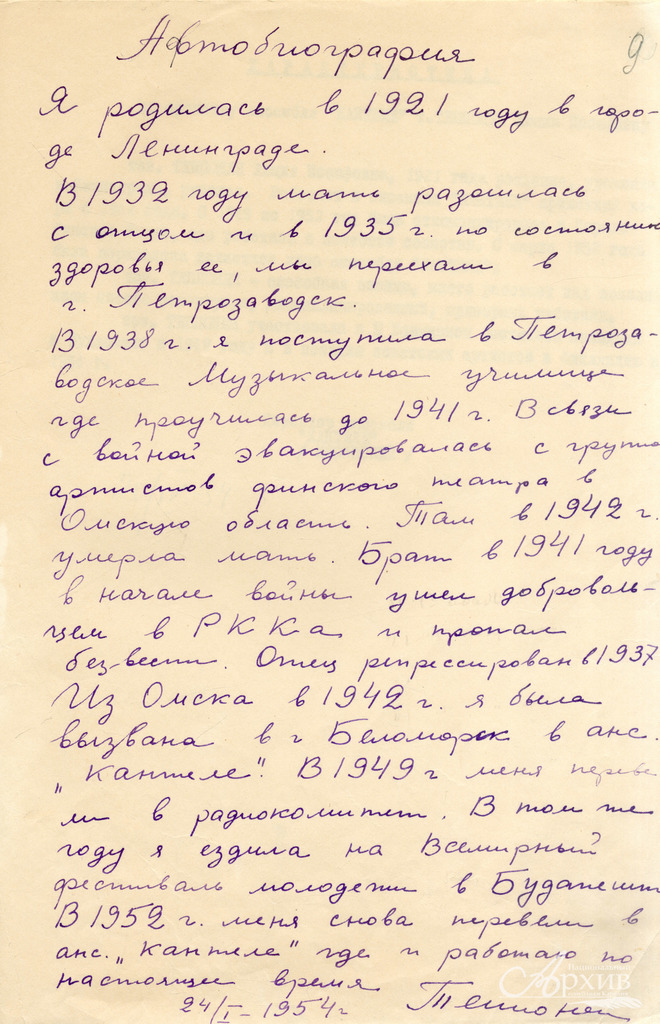 Автобиография
9
Я родилась в 1921 году в горо-
де Ленинграде.
В 1932 году мать разошлась
с отцом и в 1935 г. по состоянию
здоровья ее, мы переехали в
г. Петрозаводск.
В 1938 г. я поступила в Петроза-
водское Музыкальное училище
где проучилась до 1941 г. В связи
с войной эвакуировалась с группо
артистов финского театра в
Омскую область. Там в 1942 г.
умерла мать. Брат в 1941 году
в начале войны ушел доброволь-
цем в РККа и пропал
без-вести. Отец репрессирован в 1937
Из Омска в 1942 г. я была
вызвана в г Беломорск в анс.
„Кантеле". В 1949 г меня переве
ли в радиокомитет. В том же
году я ездила на Всемирный
фестиваль молодежи в Будапешт
В 1952 г. меня снова перевели в
анс. „Кантеле" где и работаю по
настоящее время
24/I-1954 г
Архив